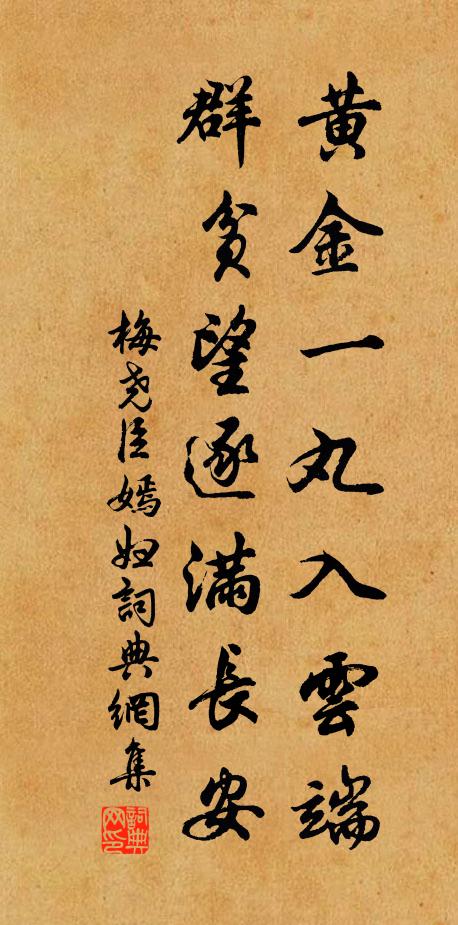 黄金一丸入雲端
群貧望逐滿長安
梅堯臣嫣如詞典網集
詞典網印